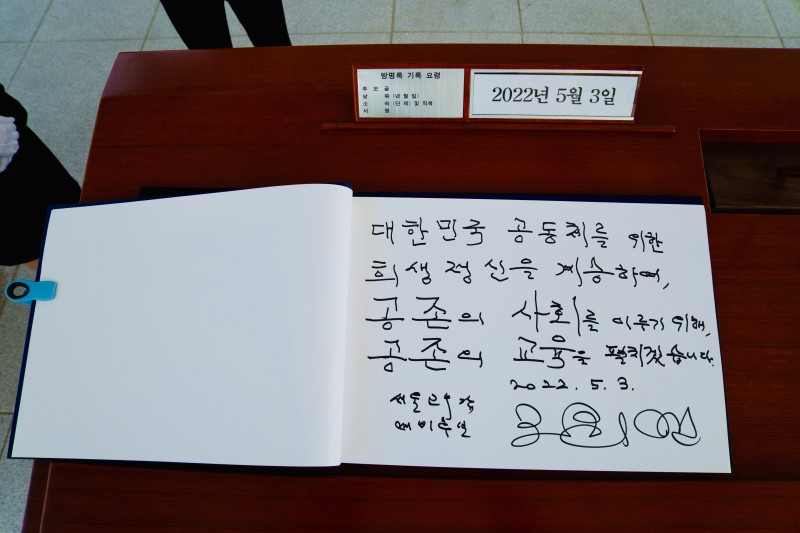 방명록 기록 요령
추 모 글
날 짜 (년 월 일)
소 속 (단 체) 및 직책
서 명
2022년 5월 3일
대한민국 공동체를 위한
희생정신을 계승하여,
공존의 사회를 이루기 위해,
공존의 교육을 펼치겠습니다.
2022. 5. 3.
서울교육감
예비후보